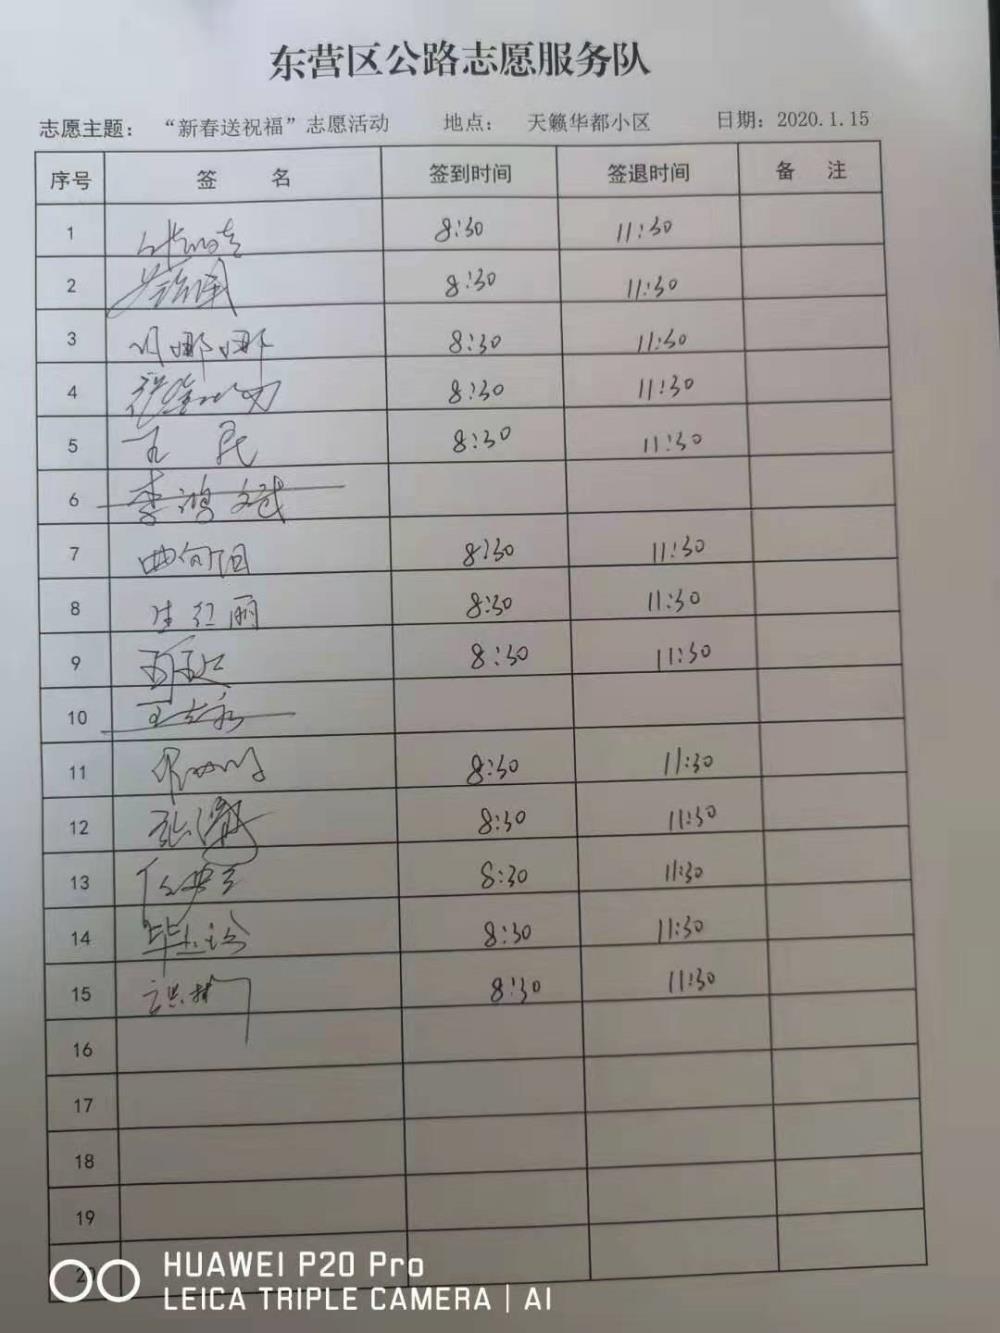 东营区公路志愿服务队
志愿主题： “新春送祝福”志愿活动 地点： 天籁华都小区 日期：2020.1.15
序号 签 名 签到时间 签退时间 备 注
1 8:30 11:30
2 8:30 11:30
3 娜娜 8:30 11:30
4 8:30 11:30
5 民 8:30 11:30
6 李鸿斌
7 曲向阳 8:30 11:30
8 生红丽 8:30 11:30
9 8:30 11:30
10 王志永
11 8:30 11:30
12 8:30 11:30
13 8:30 11:30
14 8:30 11:30
15 8:30 11:30
16
17
18
19
20
HUAWEI P20 Pro
LEICA TRIPLE CAMERA | AI